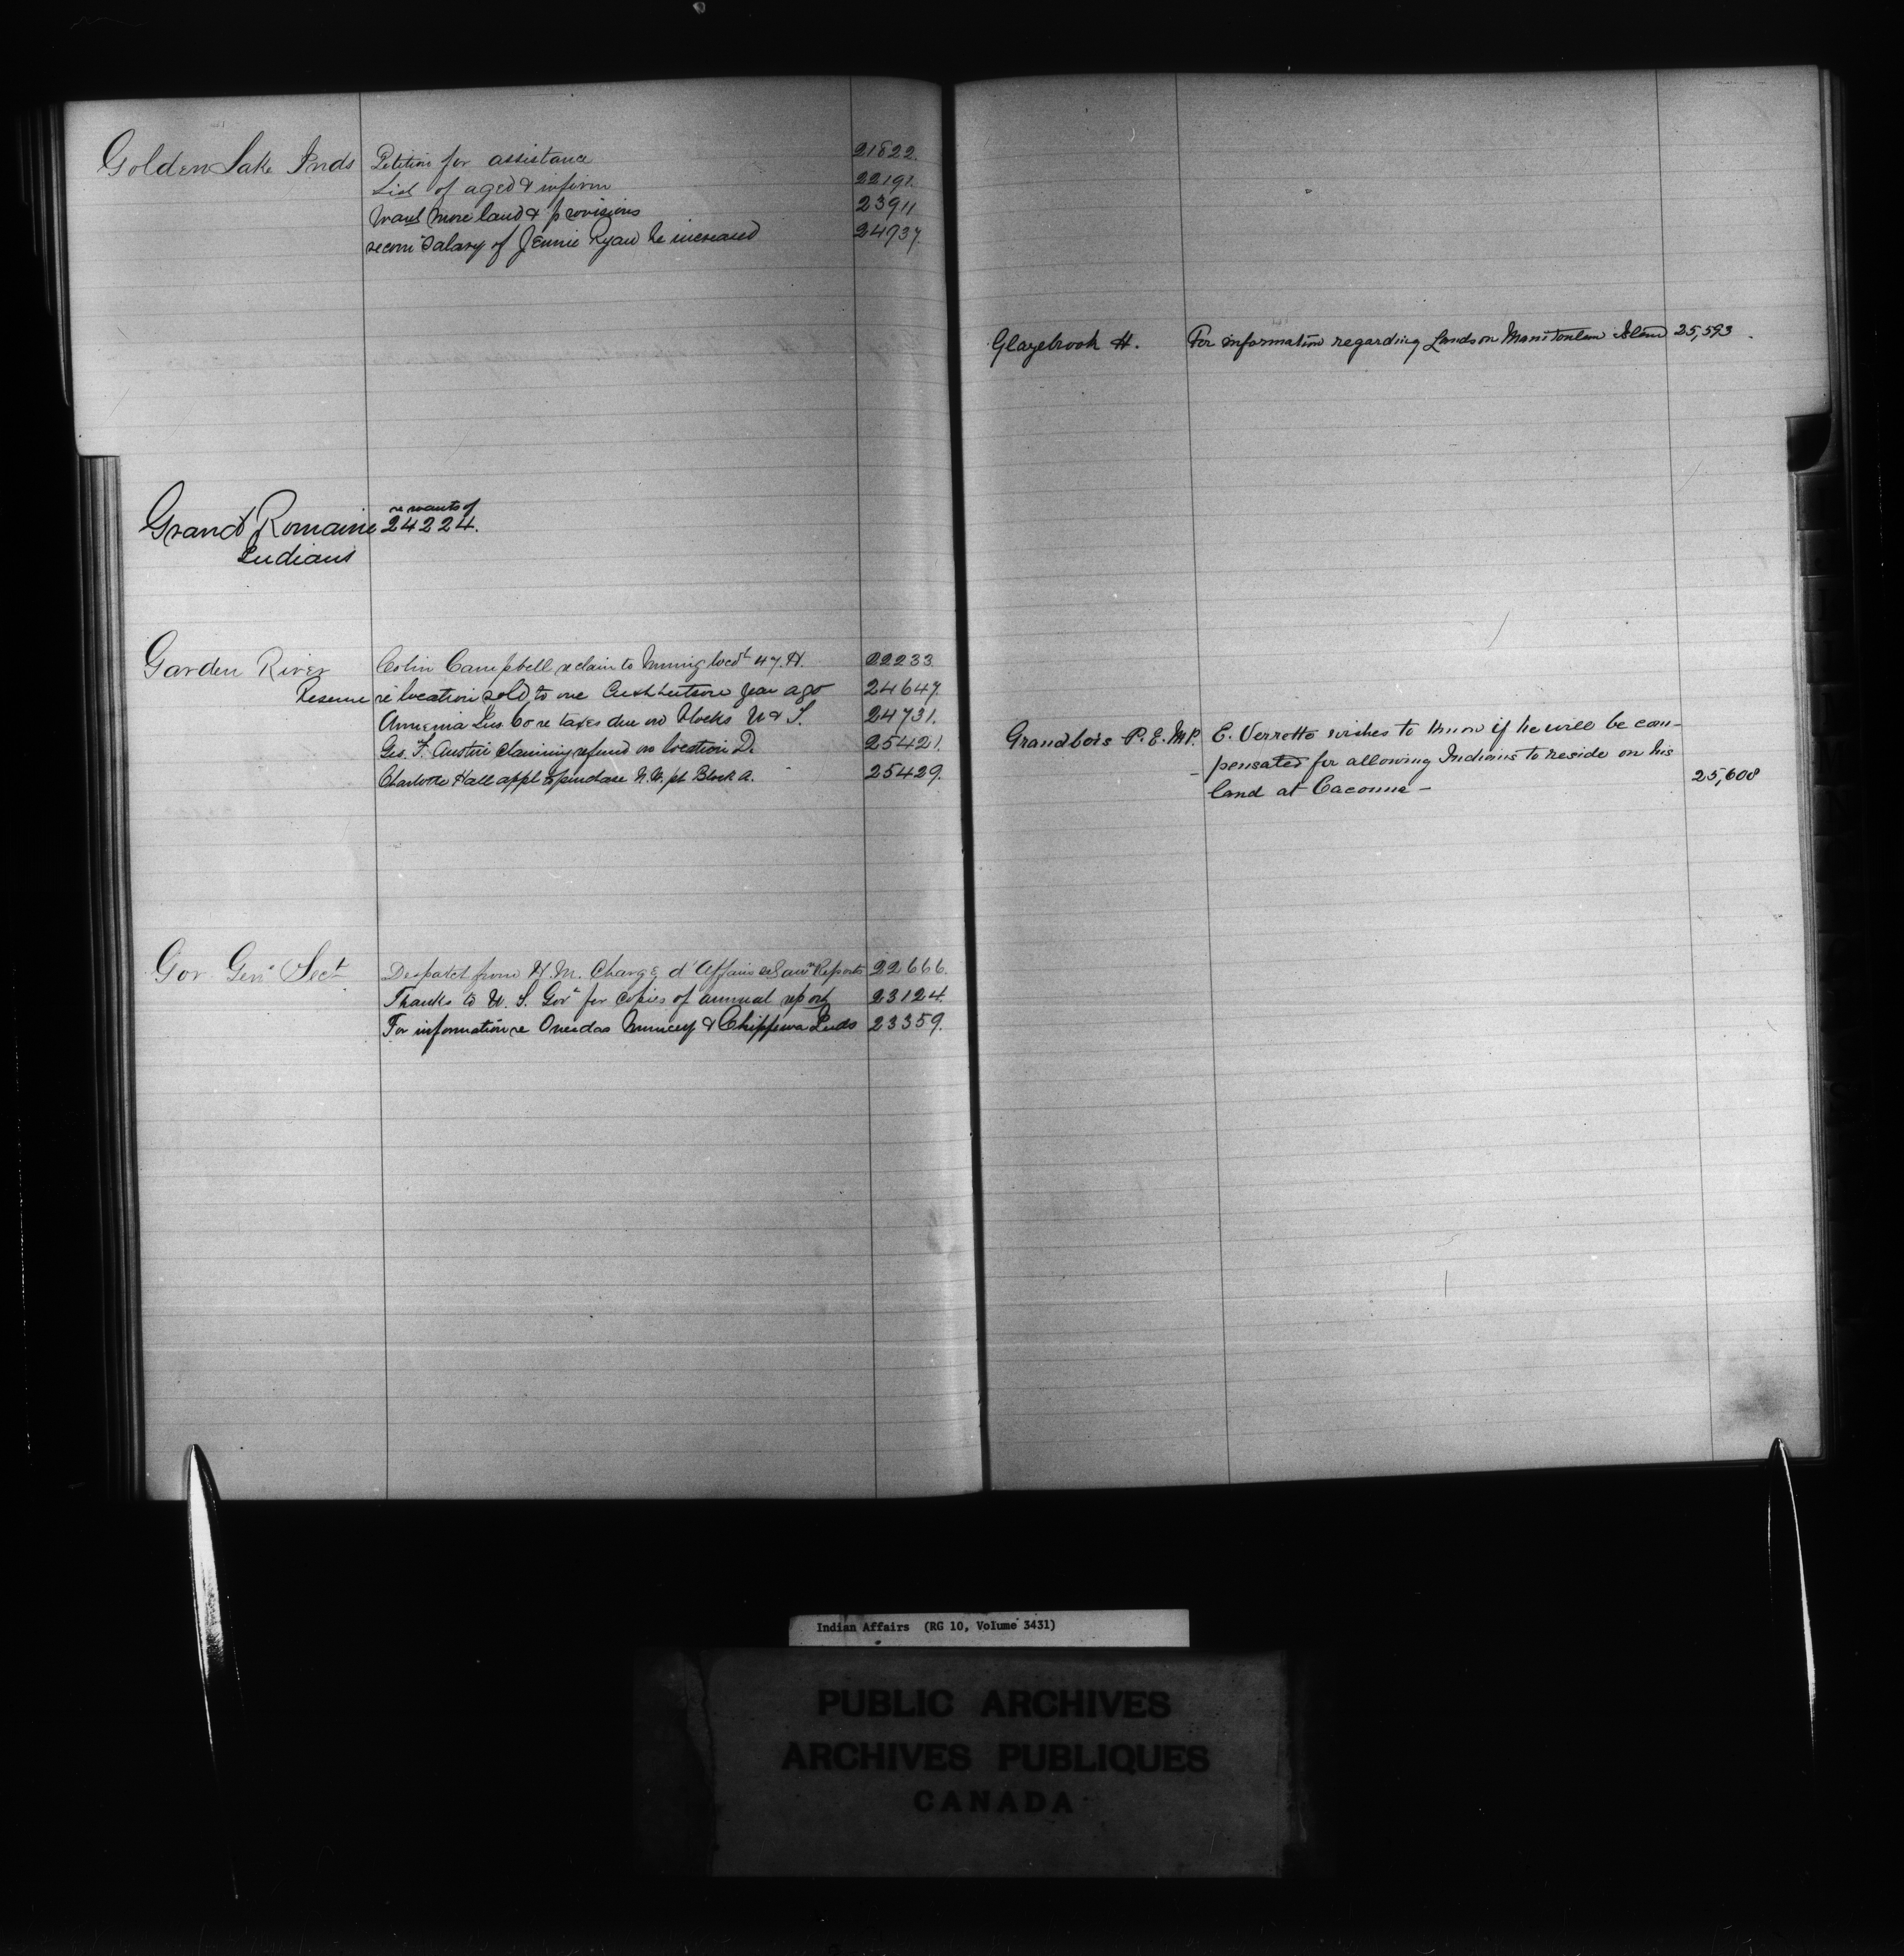 Golden Lake Inds Petition for assistance 21822.
List of aged & infirm 22191.
Want more land & provisions 23911
recom salary of Jennie Ryan be increased 24937.
Grand Romaine re wants of 24224.
Indians
Garden River Colin Campbell re claim to Mining Locn 47. H. 22233
Reserve re location sold to one year ago 24647.
Co re taxes due on blocks & S. 24731.
Geo. F. Austin claiming refund on location D. 25421.
Charlotte Hall appl to purchase N.W. pt Block A. 25429.
Gov Genls Secy Despatch from H. M. Chargé d'Affaires Reports 22666.
Thanks to U. S. Govt for copies of annual report 23124.
For information re Oneidas Muncey & Chippewa Inds 23359.
Glazebrook H. For information regarding Lands on Manitoulin Island 25,593.
Grandbois P. E. M.P. E. Verrotto wishes to know if he will be com-
pensated for allowing Indians to reside on his
land at Cacouna - 25,608
Indian Affairs (RG 10, Volume 3431)
PUBLIC ARCHIVES
ARCHIVES PUBLIQUES
CANADA